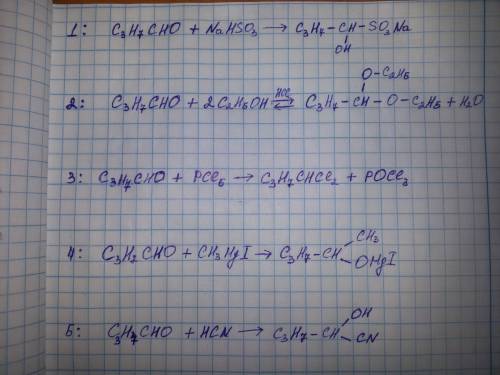 1: C3H7CHO + NaHSO3 → C3H7 – CH – SO3Na
OH
O – C2H5
2: C3H7CHO + 2C2H5OH ⇌ HCl C3H7 – CH – O – C2H5 + H2O
3: C3H7CHO + PCl5 → C3H7CHCl2 + POCl3
CH3
4: C3H7CHO + CH3MgI → C3H7 – CH
OMgI
OH
5: C3H7CHO + HCN → C3H7 – CH
CN